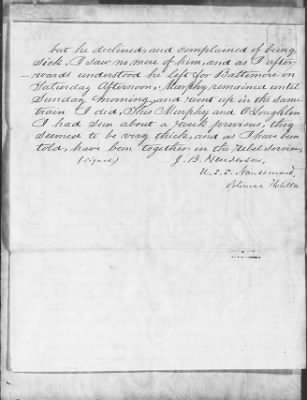 but he declined, and complained of being
sick, I saw no more of him, and as I after-
wards understood he left for Baltimore on
Saturday Afternoon, Murphy remained until
Sunday morning and went up in the same
train I did, This Murphy and O'Loughlin
I had seen about a week previous, they
seemed to be very thick, and as I have been
told, have been together in the Rebel Service,
(signed) J. B. Henderson,
U.S.S.